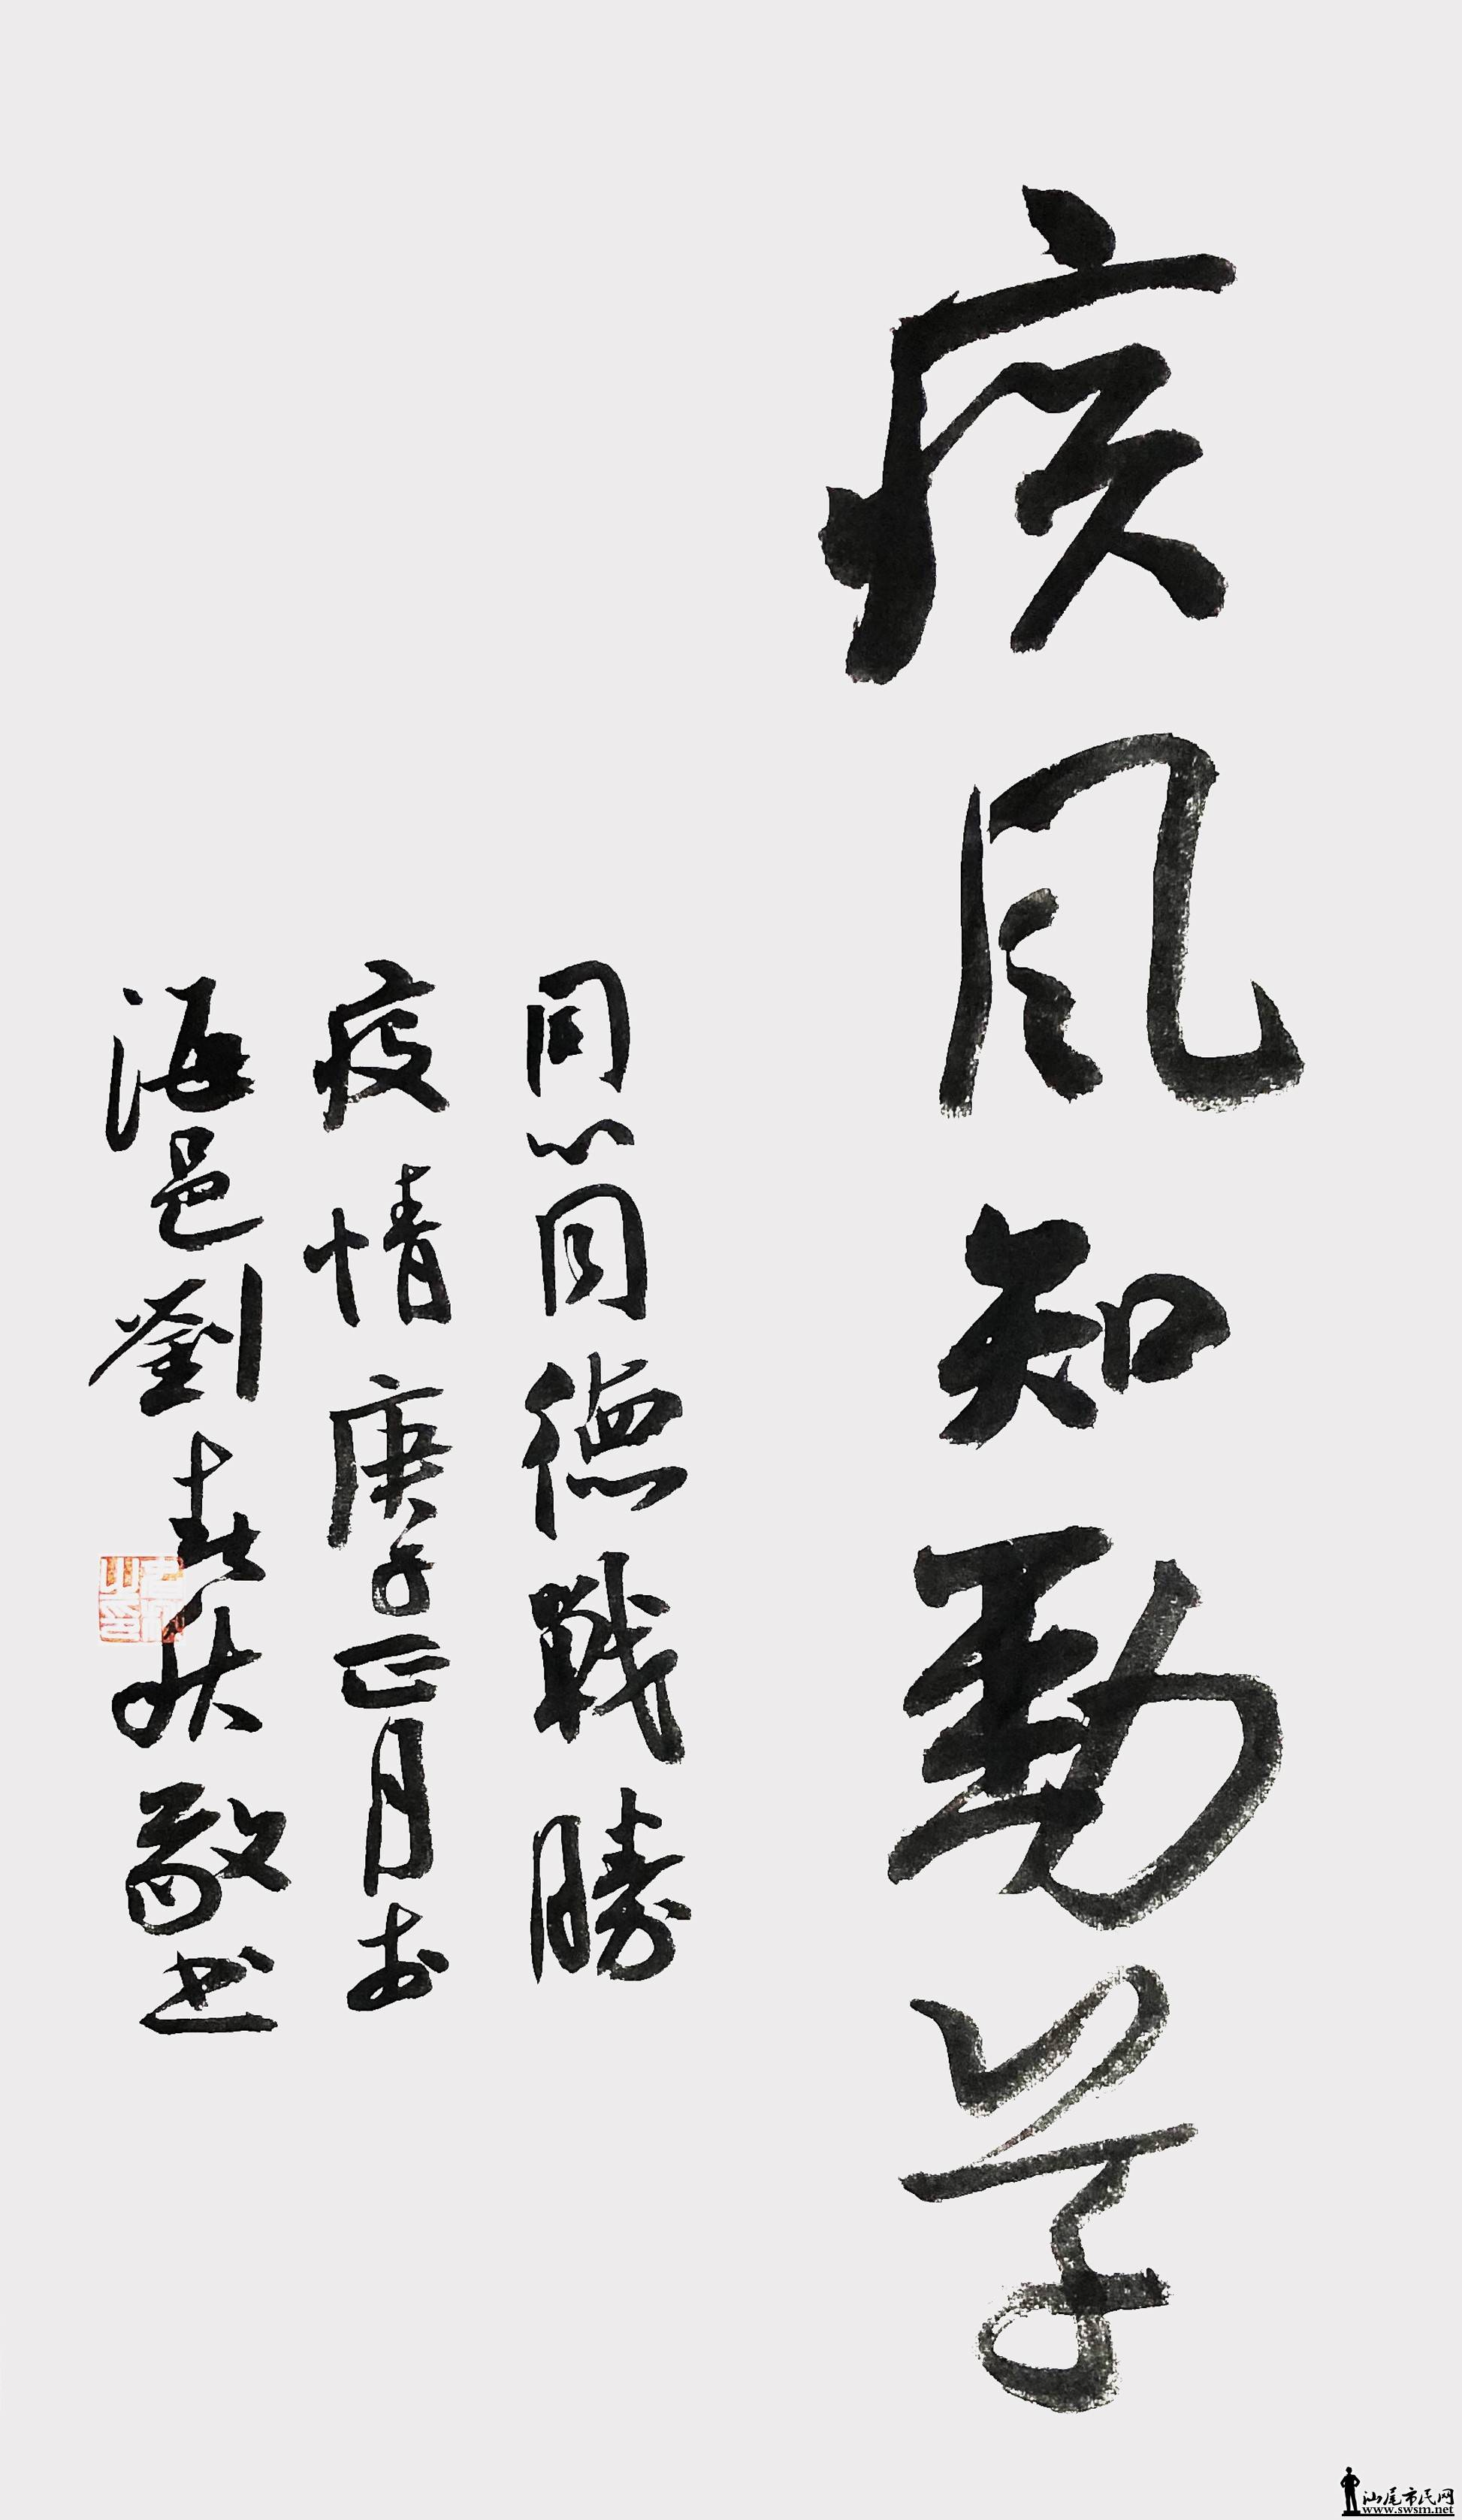 疾风知劲草
同心同德戰勝
疫情庚子正月於
海邑劉春秋敬书
汕尾市民网
www.swsm.net